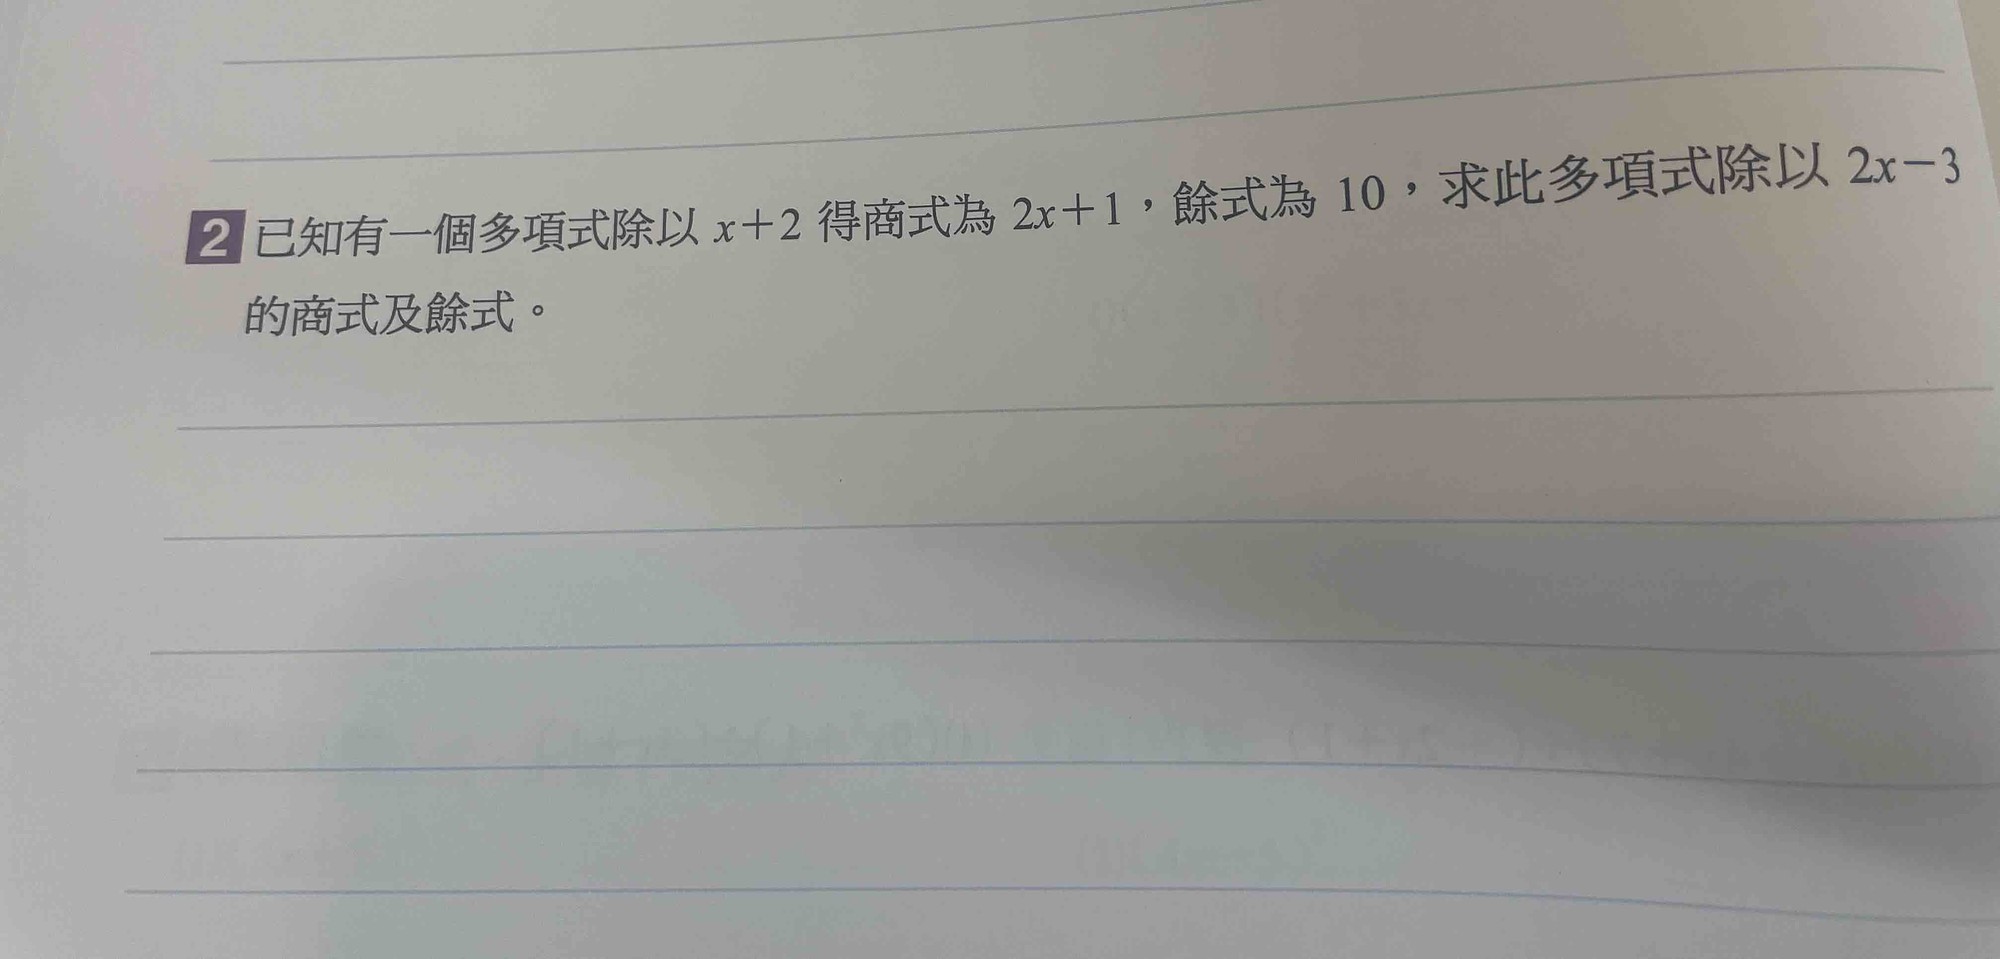 2 已知有一個多項式除以 x+2 得商式為 2x+1，餘式為 10，求此多項式除以 2x−3
的商式及餘式。